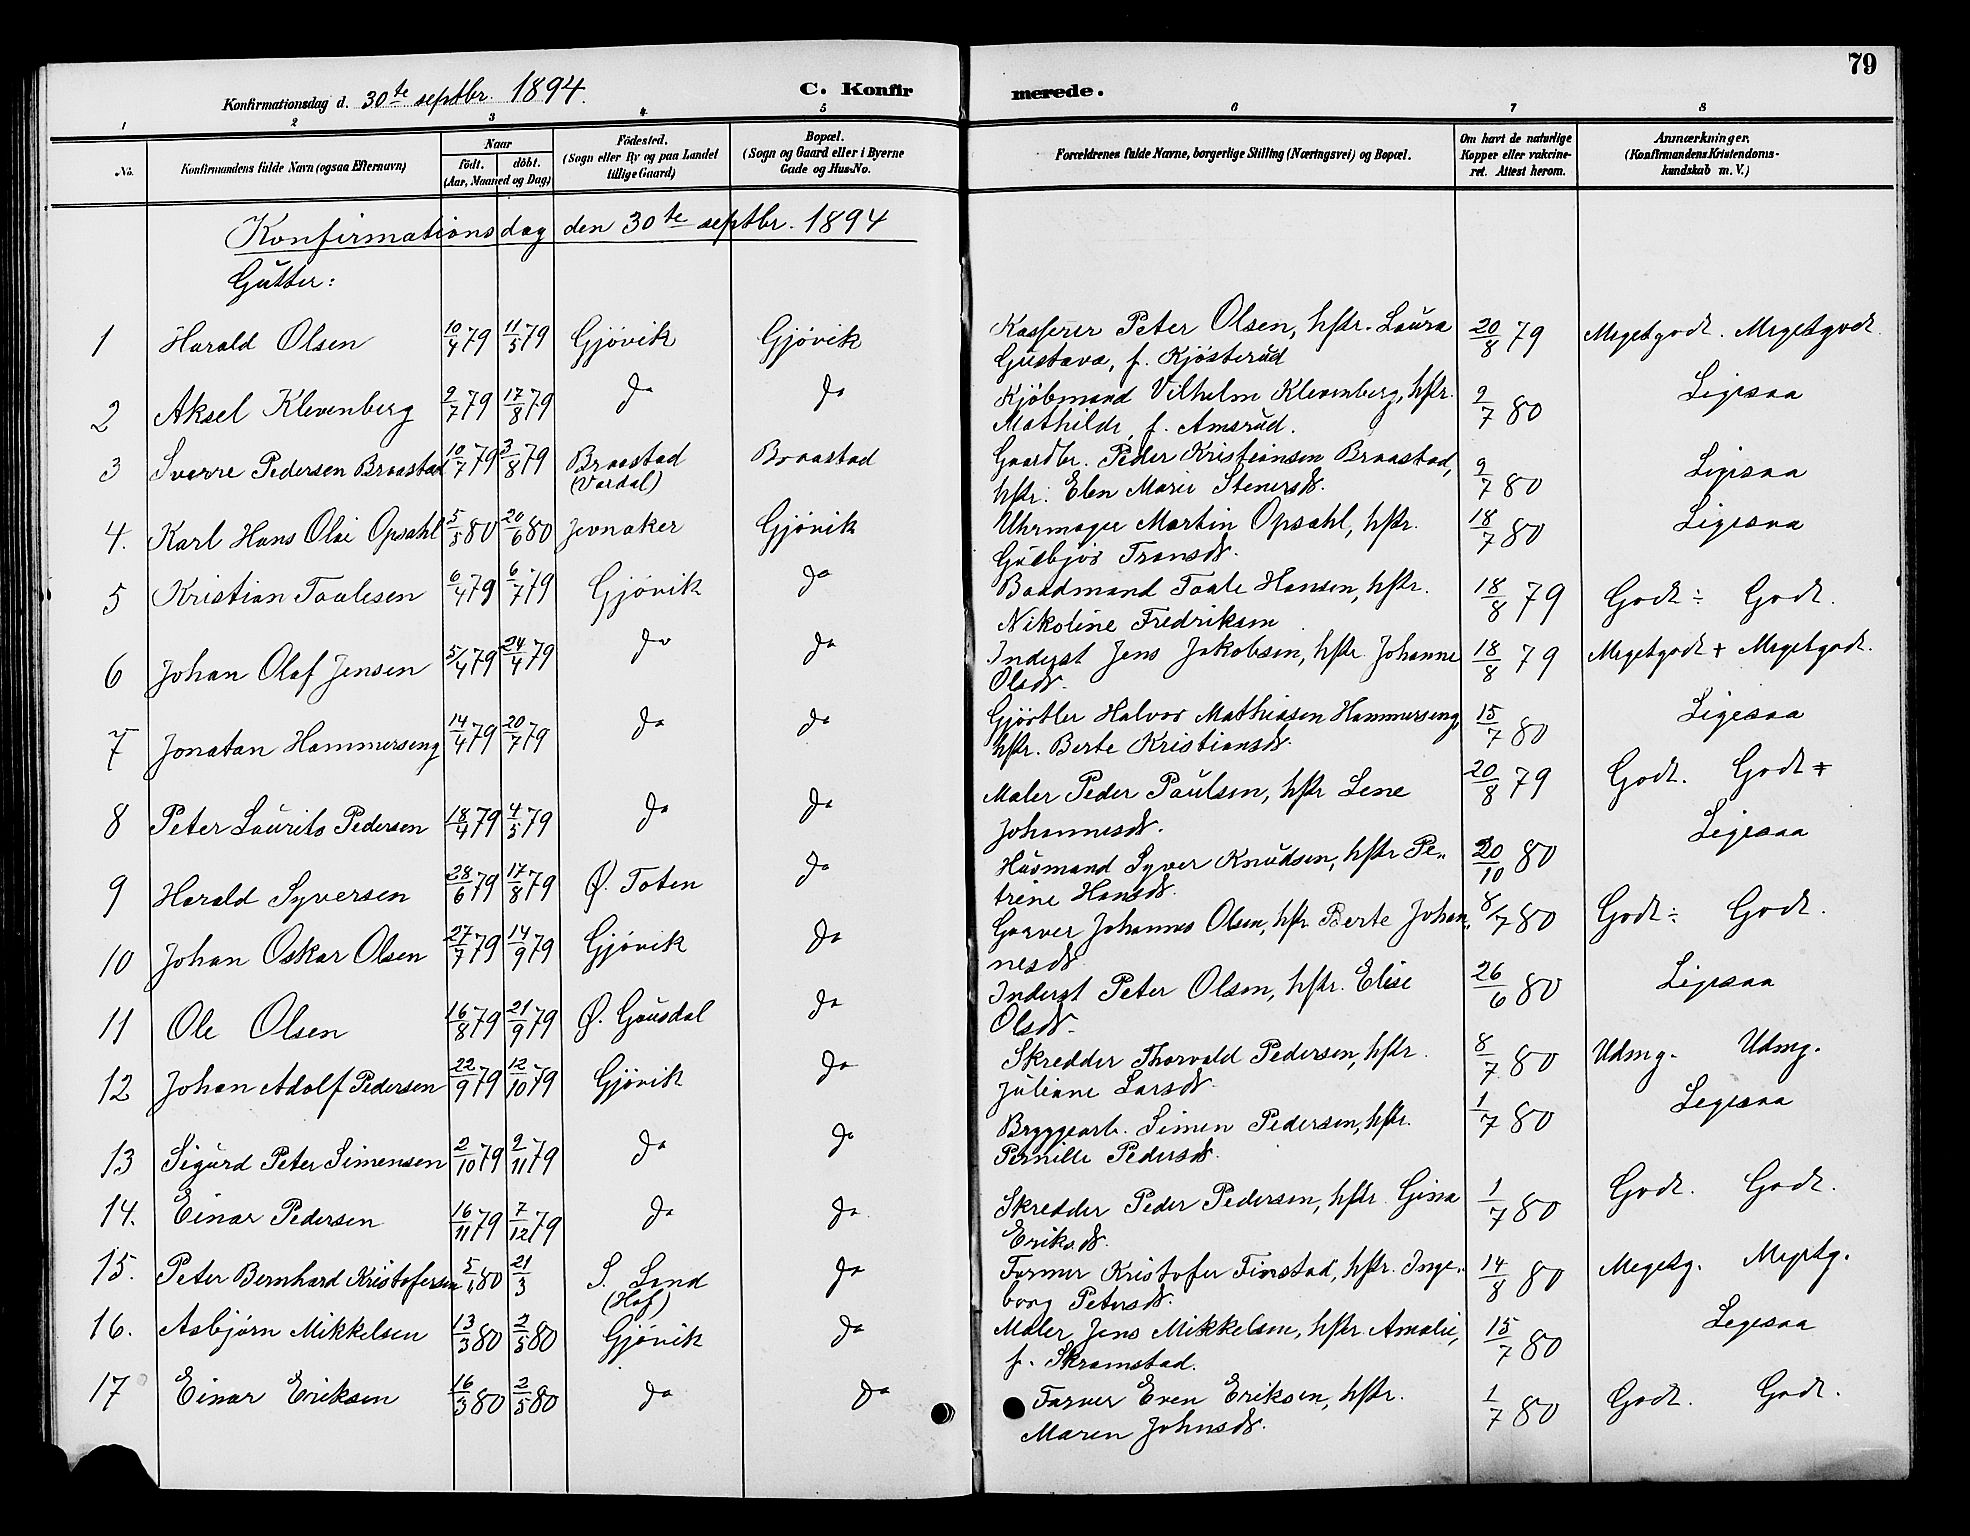 79
Konfirmationsdag d. 30te septbr. 1894. C. Konfirmerede.
1 2 3 4 5 6 7 8
No. Konfirmandens fulde Navn (ogsaa Efternavn) Naar født. døbt. (Aar, Maaned og Dag) Fødested. (Sogn eller By og paa Landet tillige Gaard) Bopæl. (Sogn og Gaard eller i Byerne Gade og Hus-No. Forældrenes fulde Navne, borgerlige Stilling (Næringsvei) og Bopæl. Om havt de naturlige Kopper eller vakcineret. Attest herom. Anmærkninger. (Konfirmandens Kristendomskundskab m. V.)
Konfirmationsdag den 30te septbr. 1894
Gutter:
1 Harald Olsen 10/4 79 11/5 79 Gjøvik Gjøvik Kasserer Peter Olsen, hstr. Laura 20/8 79 Megetgodt. Megetgodt.
Gustava, f. Kjøsterud
2 Aksel Klevenberg 2/7 79 17/8 79 do do Kjøbmand Vilhelm Klevenberg, hstr. 2/7 80 Ligesaa
Mathilde, f. Amsrud.
3 Sverre Pedersen Braastad 10/7 79 3/8 79 Braastad (Vardal) Braastad Gaardbr. Peder Kristiansen Braastad, 2/7 80 Ligesaa
hstr. Elen Marie Stenersdr.
4. Karl Hans Olai Opsahl 5/5 80 20/6 80 Jevnaker Gjøvik Uhrmager Martin Opsahl, hstr. 18/7 80 Ligesaa
Gudbjør Transdr.
5 Kristian Taalesen 6/4 79 6/7 79 Gjøvik do Baadmand Taale Hansen, hstr. 18/8 79 Godt ÷ Godt.
Nikoline Fredriksen
6 Johan Olaf Jensen 5/4 79 24/4 79 do do Inderst Jens Jakobsen, hstr. Johanne 18/8 79 Megetgodt + Megetgodt.
Olsdr.
7 Jonatan Hammerseng 14/4 79 20/7 79 do do Gjørtler Halvor Mathiasen Hammerseng, 15/7 80 Ligesaa
hstr. Berte Kristiansdr.
8 Peter Laurits Pedersen 18/4 79 4/5 79 do do Maler Peder Paulsen, hstr Lene 20/8 79 Godt. Godt +
Johannesdr.
9 Harald Syversen 28/6 79 17/8 79 Ø. Toten do Husmand Syver Knudsen, hstr Pe- 20/10 80 Ligesaa
trine Hansdr.
10 Johan Oskar Olsen 27/7 79 14/9 79 Gjøvik do Garver Johannes Olsen, hstr Berte Johan- 8/7 80 Godt ÷ Godt.
nesdr.
11 Ole Olsen 16/8 79 21/9 79 Ø. Gausdal do Inderst Peter Olsen, hstr. Elise 26/6 80 Ligesaa
Olsdr.
12 Johan Adolf Pedersen 22/9 79 12/10 79 Gjøvik do Skredder Thorvald Pedersen, hstr. 8/7 80 Udmg. Udmg.
Juliane Larsdr.
13 Sigurd Peter Simensen 2/10 79 2/11 79 do do Bryggearb. Simen Pedersen, hstr. 1/7 80 Ligesaa
Pernille Pedersdr.
14. Einar Pedersen 16/11 79 7/12 79 do do Skredder Peder Pedersen, hstr. Gina 1/7 80 Godt. Godt.
Eriksdr.
15. Peter Bernhard Kristofersen 5/1 80 21/3 S. Land (Hof) do Farmer Kristofer Finstad, hstr. Inge- 14/8 80 Megetg. Megetg.
borg Petersdr.
16. Asbjørn Mikkelsen 13/3 80 2/5 80 Gjøvik do Maler Jens Mikkelsen, hstr. Amalie, 15/7 80 Ligesaa
f. Skramstad.
17 Einar Eriksen 16/3 80 2/5 80 do do Farver Even Eriksen, hstr. 1/7 80 Godt. Godt.
Maren Johnsdr.